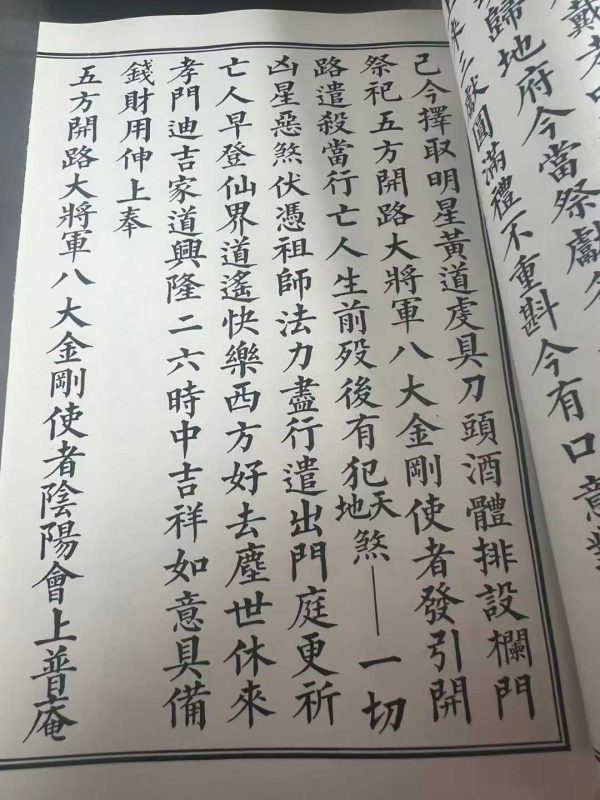 戴者
歸地府今當祭獻
三獻圓滿禮不重斟今有口意
己今擇取明星黃道虔具刀頭酒體排設欄門
祭祀五方開路大將軍八大金剛使者發引開
路遣殺當行亡人生前歿後有犯天地煞——一切
凶星惡煞伏憑祖師法力盡行遣出門庭更祈
亡人早登仙界道遙快樂西方好去塵世休來
孝門迪吉家道興隆二六時中吉祥如意具備
錢財用伸上奉
五方開路大將軍八大金剛使者陰陽會上普庵